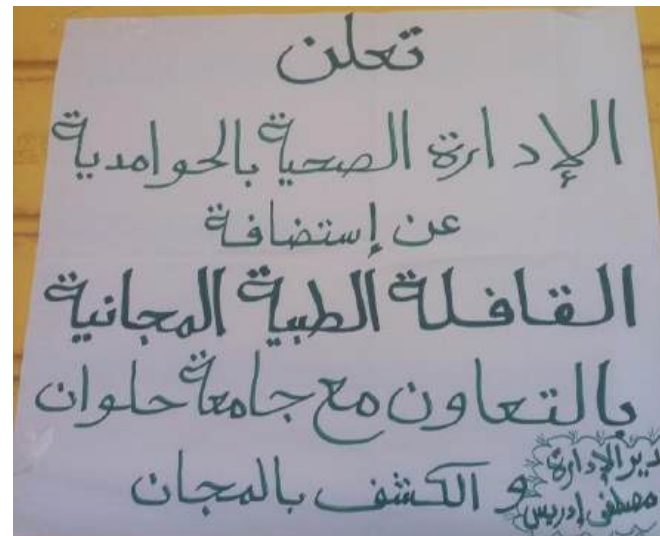 تعلن
الإدارة الصحية بالحوامدية
عن إستضافة
القافلة الطبية المجانية
بالتعاون مع جامعة حلوان
و الكشف بالمجان
مدير الإدارة
مصطفى إدريس